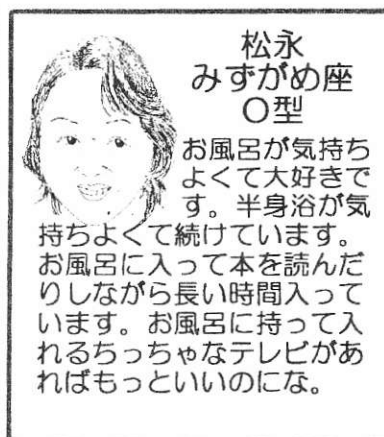 松永
みずがめ座
O型
お風呂が気持ち
よくて大好きで
す。半身浴が気
持ちよくて続けています。
お風呂に入って本を読んだ
りしながら長い時間入って
います。お風呂に持って入
れるちっちゃなテレビがあ
ればもっといいのにな。